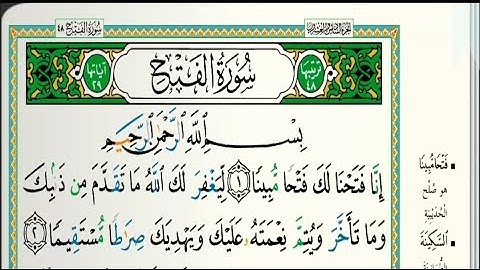 سُورَةُ الفَتْحِ ٤٨
تَرتيبُهَا ٤٨
سُورَةُ الفَتْحِ
آيَاتُهَا ٢٩
بِسْمِ اللَّهِ الرَّحْمَٰنِ الرَّحِيمِ
إِنَّا فَتَحْنَا لَكَ فَتْحًا مُّبِينًا ١ لِّيَغْفِرَ لَكَ اللَّهُ مَا تَقَدَّمَ مِن ذَنۢبِكَ
وَمَا تَأَخَّرَ وَيُتِمَّ نِعْمَتَهُۥ عَلَيْكَ وَيَهْدِيَكَ صِرَٰطًا مُّسْتَقِيمًا ٢
▪ فَتْحًا مُّبِينًا
هو صُلْح
الحُدَيْبِيَة
▪ السَّكِينَةَ